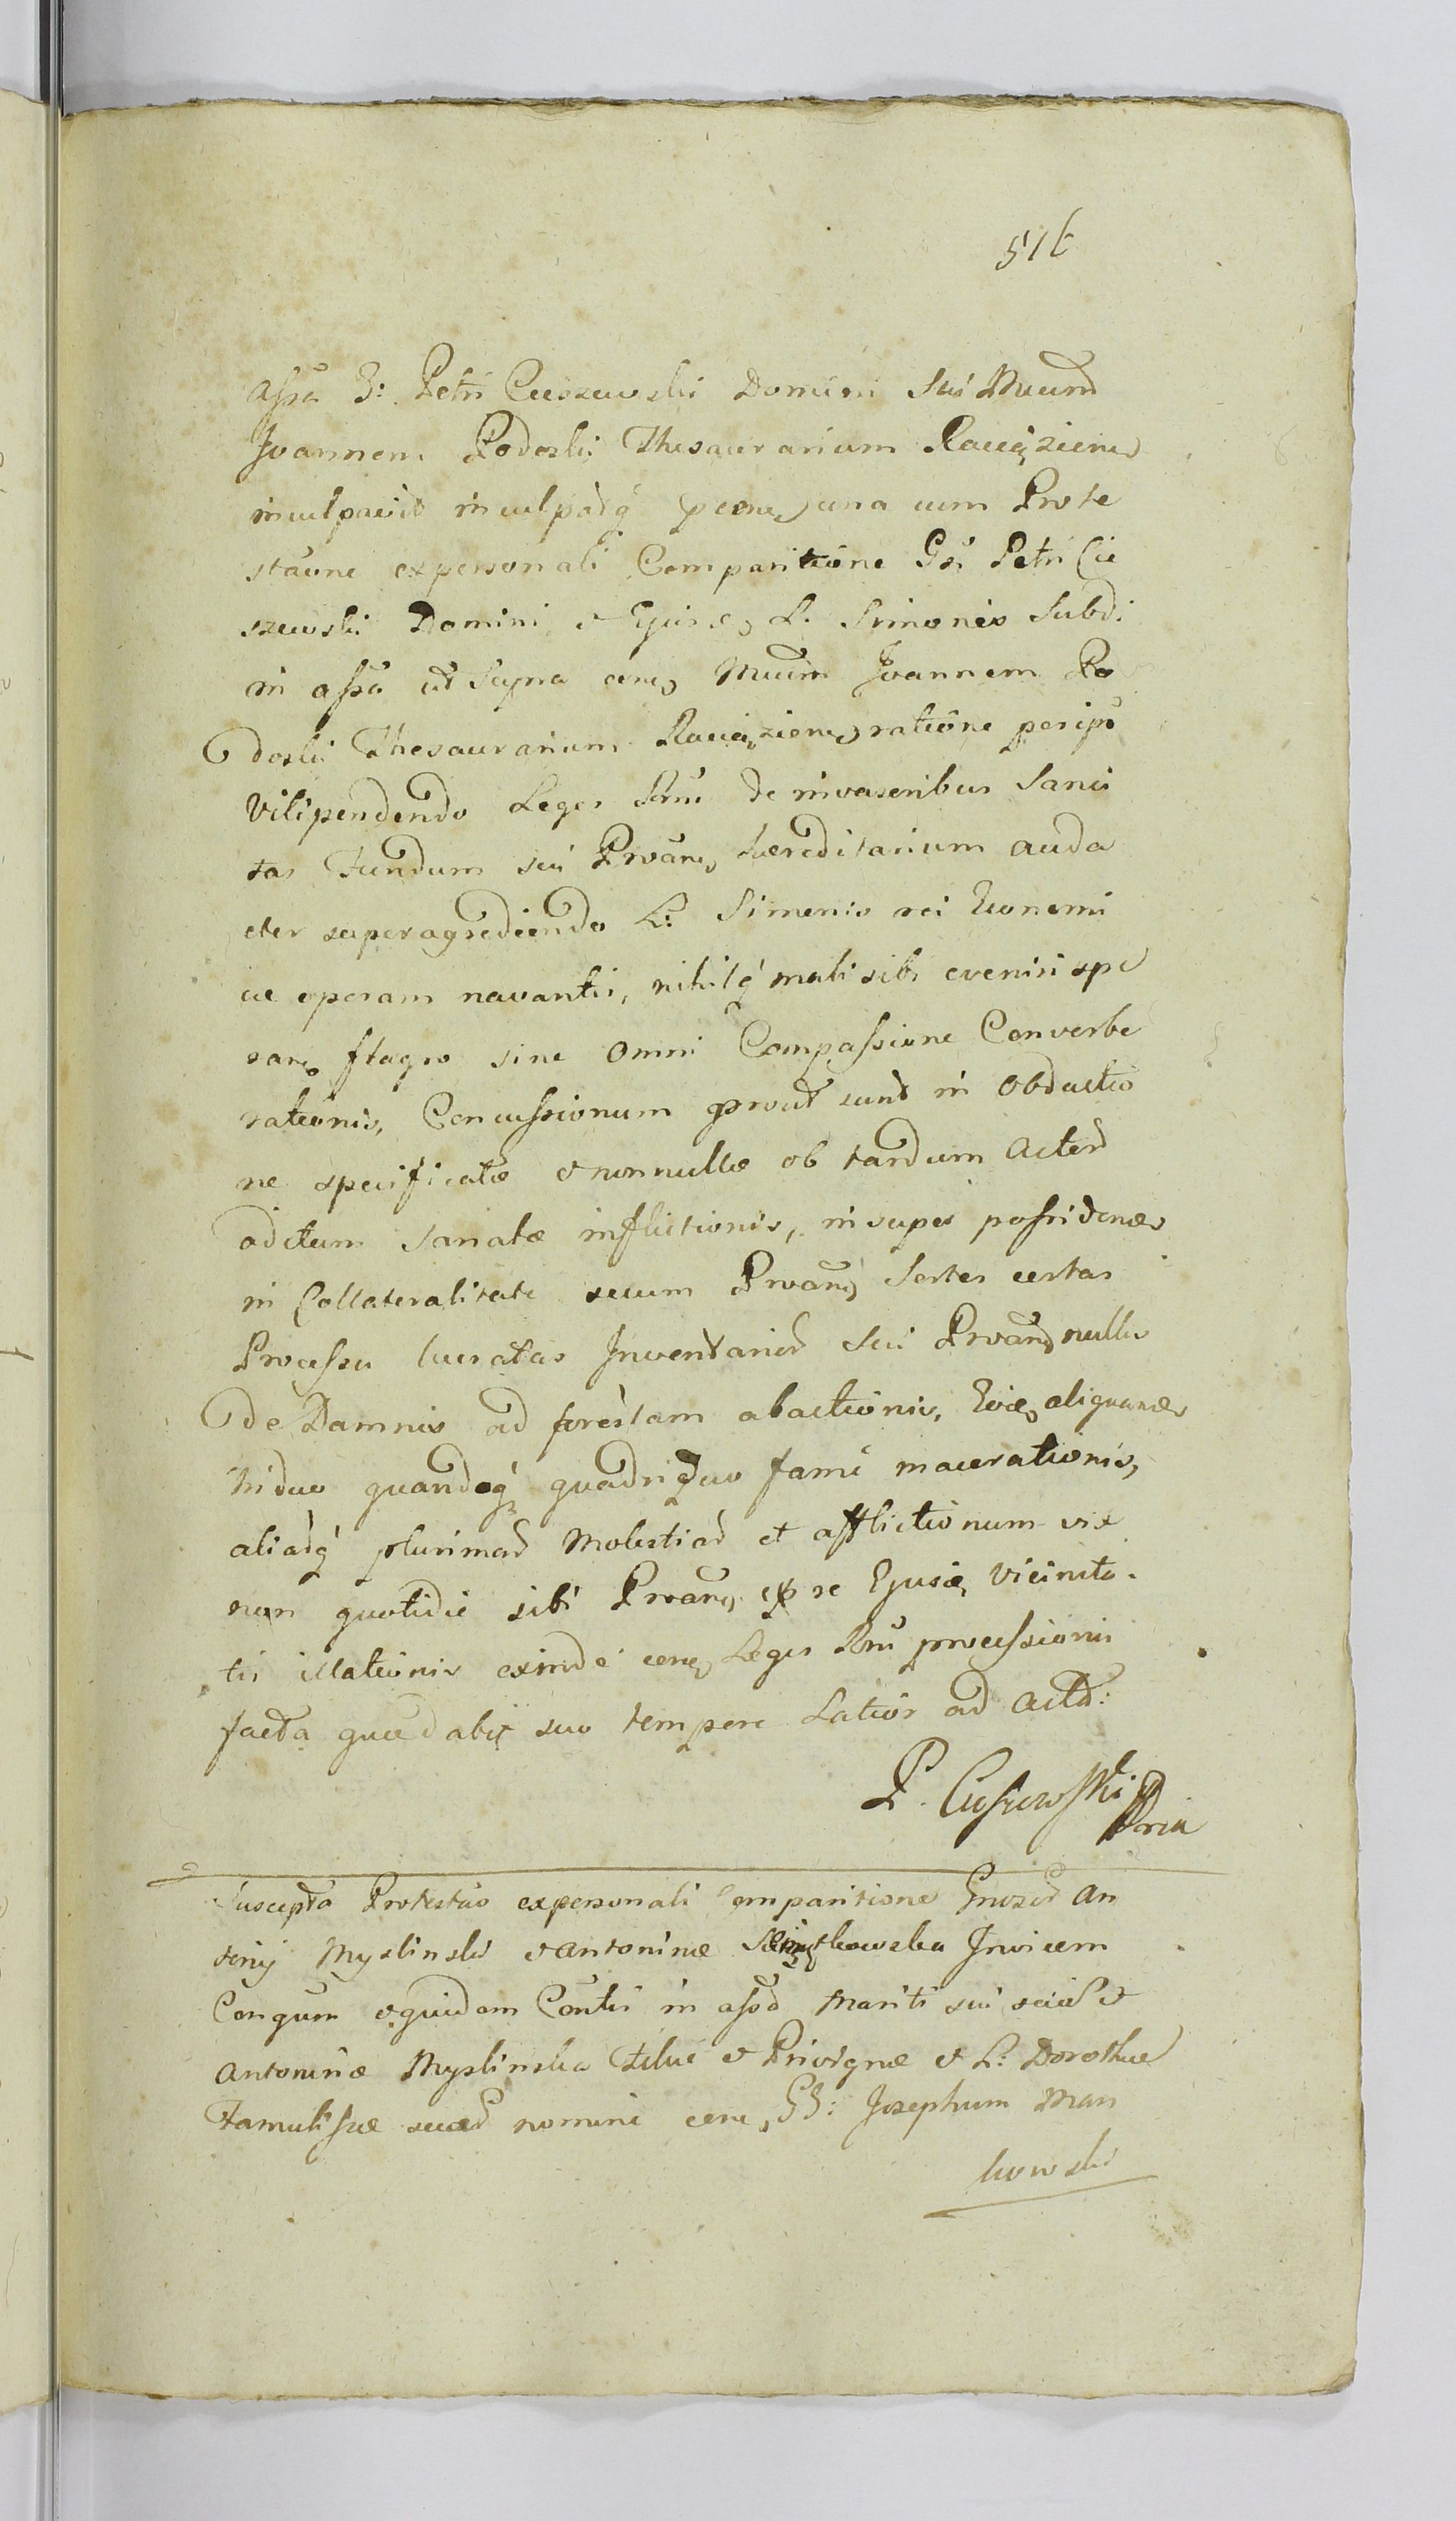 516
assa G: Petri Cieszewski Domini sui Mucum
Joannem Podoski Thesaurarium Raciąziens
inculpavit inculpatq penes una cum Prote
staōne expersonali Comparitione Gsi Petri Cie
szewski Domini et Ejusd L. Simonis Subdi
in assa ut Supra cons Mucum Joannem Po
doski Thesaurarium Raciąziens ratione per ip
vilipendendo Leges Rni de invasoribus Sanci
tas Fundum sui Proāns hæreditarium auda
cter superagrediendo L: Simonis rei Economi
cæ operam navantis, nihilq mali sibi eveniri spe
rans flagro sine omni Compassione Converbe
rationis, Concussionum prout sunt in Obductio
ne specificatæ et nonnullæ ob tardum Actor
aditum sanatæ inflictionis, insuper possidens
in Collateralitate secum Proāns Sortes certas
Processu lucratas Inventarior sui Proāns nullis
de Damnis ad forestam abactionis, aliquando
triduo quandoq quadriduo fame macerationis,
aliarq plurimar Molestiar et afflictionum vix
non quotidie sibi Proāns ex re Ejusd vicinita
tis illationis exinde cons Leges Rni processionis
facta quæ dabit suo tempore Latior ad Acta:
P. Cieszewski
Suscepta Protestāo expersonali Comparitione Gnosor An
tonij Myslinski et Antoninæ Invicem
Conjum et quidem Contis in assa Mariti sui et
Antoninæ Myslinska Filiæ et Privignæ et L: Dorotheæ
Famulissæ suar nomine cons G: Josephum Man
kowski